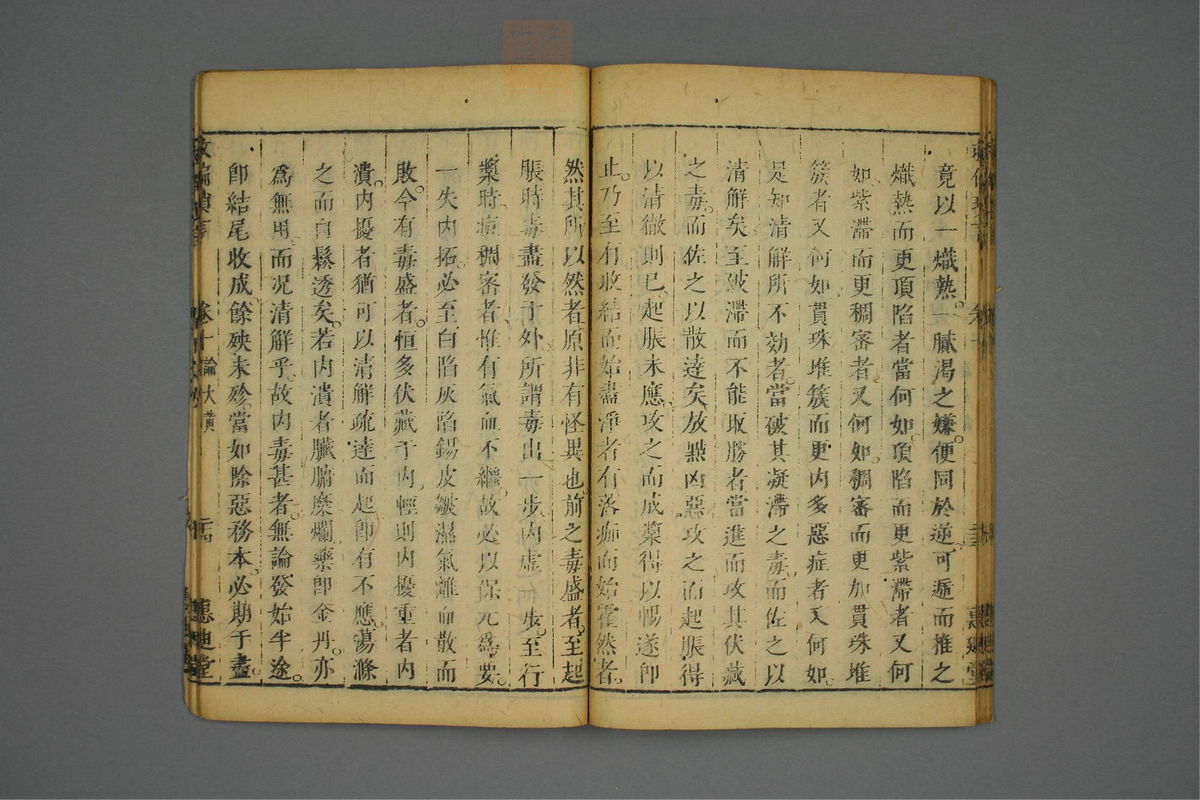 竟以一熾熱一膩渴之嫌便同於逆可遞而推之
熾熱而更項陷者當何如項陷而更紫滯者又何
如紫滯而更稠密者又何如稠密而更加貫珠堆
簇者又何如貫珠堆簇而更內多惡症者又何如
是知清解所不効者當破其凝滯之毒而佐之以
清解矣至破滯而不能取勝者當進而攻其伏藏
之毒而佐之以散達矣放㸃凶惡攻之而起脹得
以清徹則已起脹未應攻之而成漿得以暢遂即
止乃至有收結而始盡淨者有落痂而始霍然者
然其所以然者原非有怪異也前之毒盛者至起
脹時毒盡發于外所謂毒出一步內虛一步至行
漿時痘稠密者惟有氣血不繼故必以保元爲要
一失內拓必至白陷灰陷錫皮皺濕氣離血散而
敗今有毒盛者恒多伏藏于內輕則內擾重者內
潰內擾者猶可以清解疏達而起即有不應蕩滌
之而自鬆透矣若內潰者臟腑糜爛藥即金丹亦
爲無用而况清解乎故內毒甚者無論發始半途
即結尾收成餘殃未殄當如除惡務本必期于盡
卷十 論大黃
惠迪堂